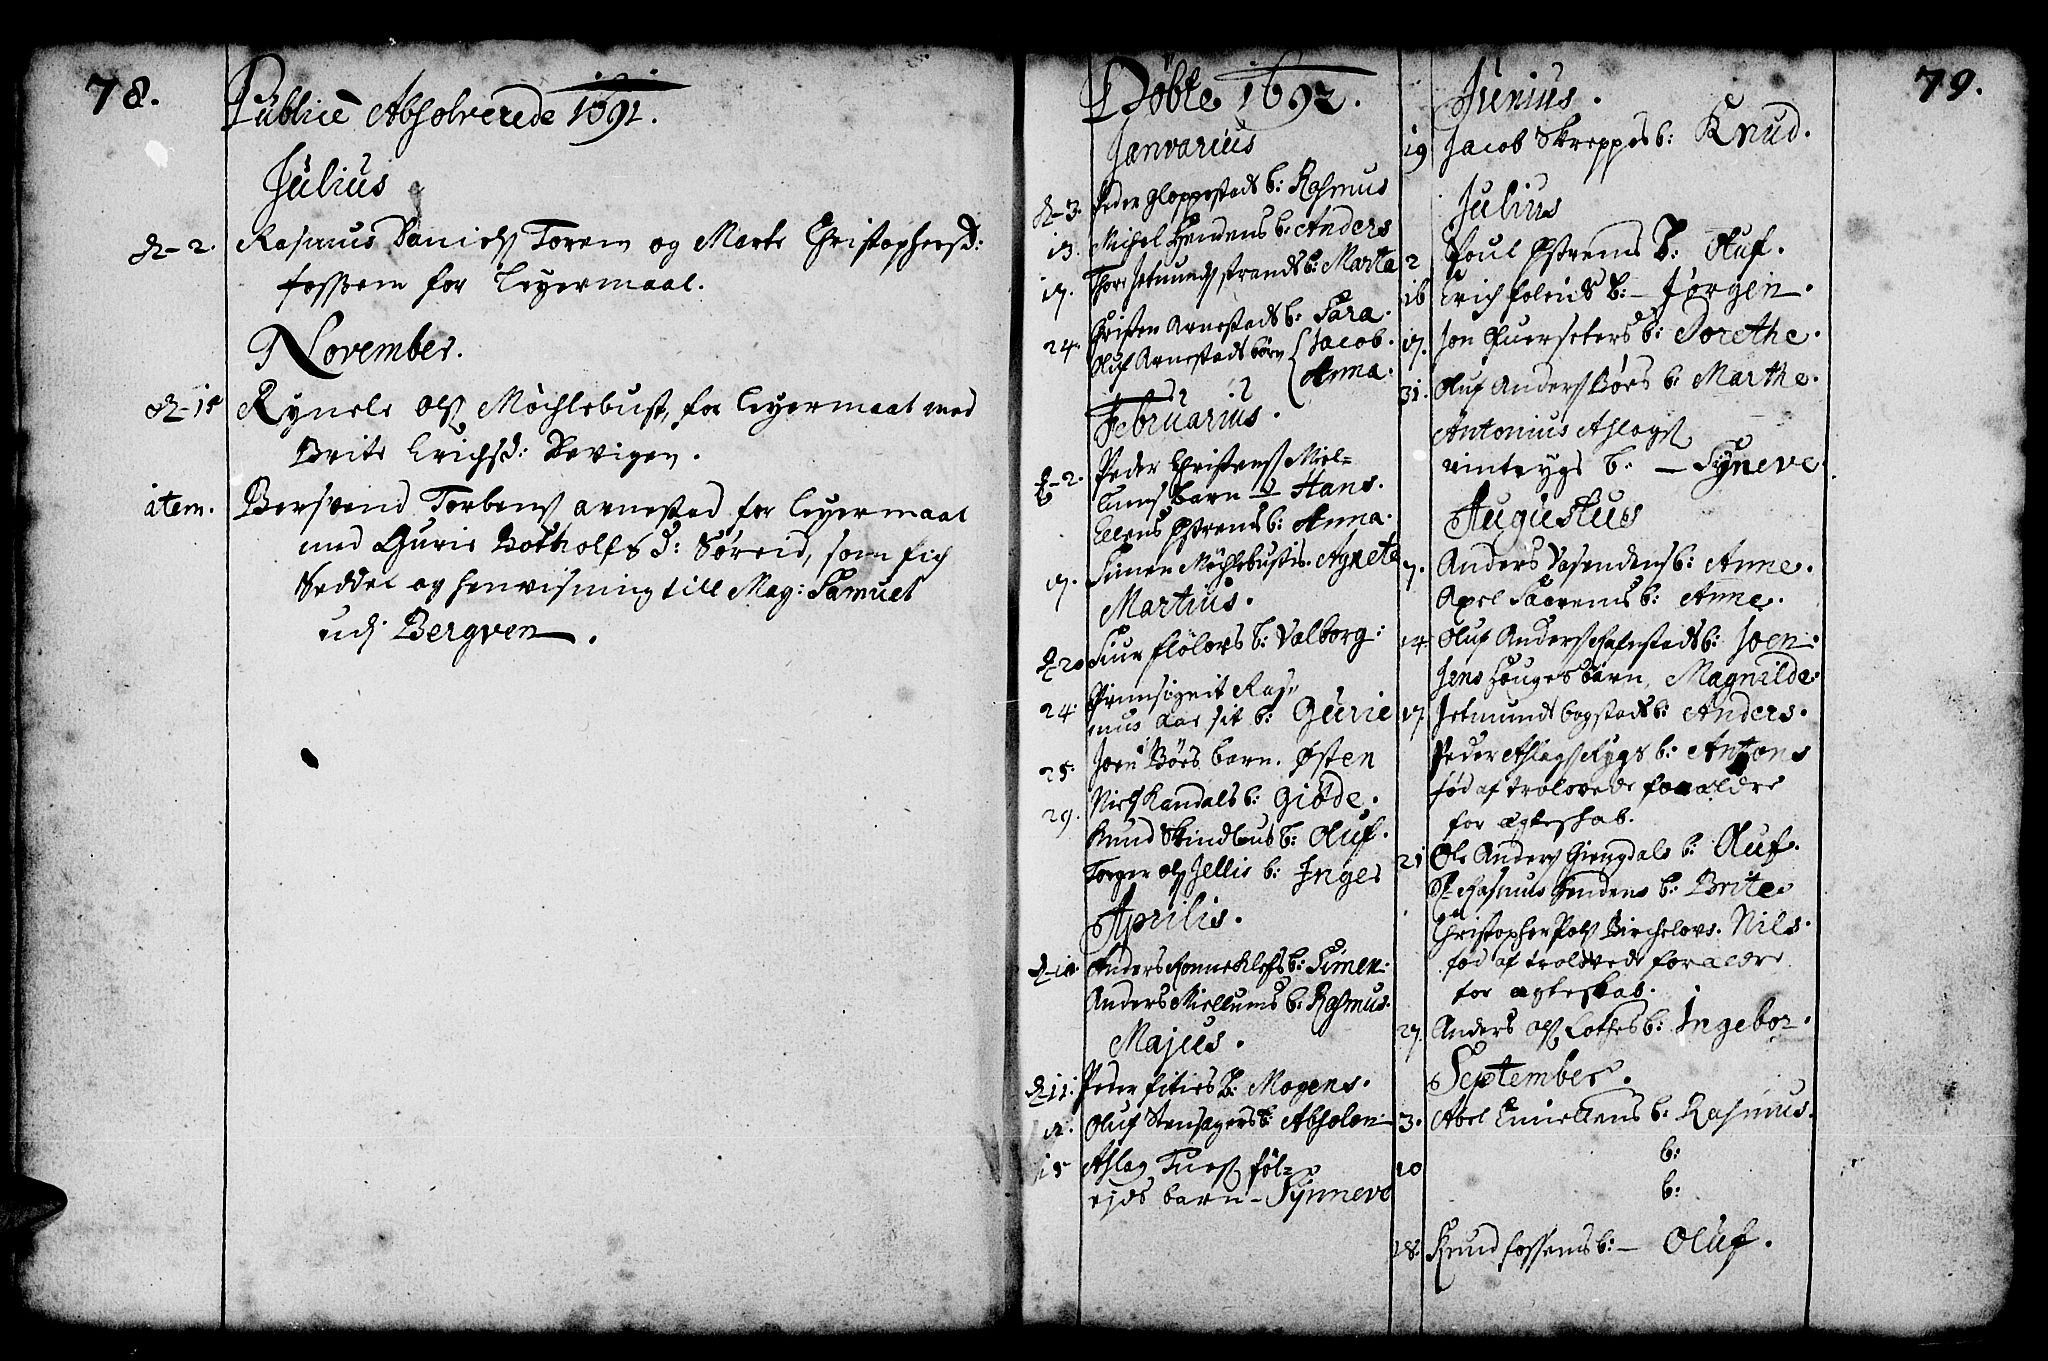 78.
Publicè Absolverede 1691.
Julius
d. 2. Rasmus Daniels Torem og Marte Christophersd:
fossem for Leyermaal.
November.
d. 15 Rynele Ols Möchlebust, for Leyermaal med
Brite Erichsd: Devigen.
item. Bersvend Torbens arnestad for Leyermaal
med Gurie Botholfsd: Söreid, som fich
Seddel og henvisning till Mag: Samuel
udj Bergven.
79.
Döbte 1692.
Janvarius
d. 3. Peder Gloppestads b: Rasmus
13. Michel Hendens b: Anders
17. Thore Jetmunds strands b: Marta
Christen Arnestads b: Sara.
24. Oluf Arnestads börn {Jacob.
Anna.
Februarius.
d. 2. Peder Christens Miel=
lums barn - Hans.
Ellens b: Anna.
17. Simen Möchlebusts. Agnete
Martius.
d. 20 Siur flölovs b: Valborg:
Ras=
24. mus b: Gurie
25. Joen Böes barn. Østen
29. Niels Kandals b: Giöde.
Knud Skindlous b: Oluf.
Torger Ols Jellis b: Inger
Aprilis.
Anders Ronneklefs b: Simen.
Anders Miellums b: Rasmus.
Majus.
d. 11. Peder fities b: Mogens.
Oluf Stensagers b: Absolon
15 Aslag Tues föl=
ejds barn - Synneve
Junius.
19 Jacob Skreppes b: Knud.
Julius
2 Poul Østrems b: Oluf.
16 Erich foleids b: - Jørgen.
17. Jon b: Dorethe.
31. Oluf Anders Böes b: Marthe.
Antonius Aslags
b: - Syneve.
Augustus
7. Anders Vasendens b: Anne.
Axel Saarems b: Anne.
14. Oluf Anders b: Joen.
Jens Houges barn, Magnilde.
17. Jetmunds bogstads b: Anders.
Peder Aslags Rygs b: Antons
fød af trolovede foraeldre
for ægteskab.
21 Ole Anders Giengdals b: Oluf.
Rasmus Hendens b: Brite
Christopher Pols Birchelovs. Nils.
fød af trolovede foraeldre
for ægteskab.
27. Anders Ols Lothes b: Ingebor.
September.
3. Abel Emellems b: Rasmus.
10 b:
b:
18. Knud fossems b: - Oluf.